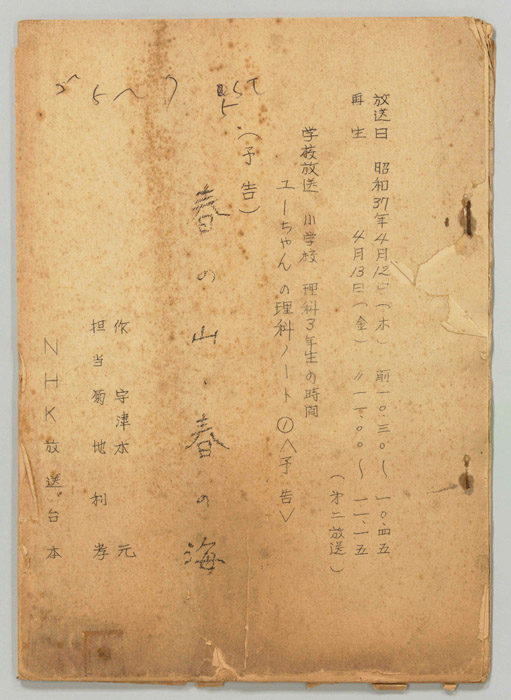 放送日 昭和37年4月12日(木) 前一〇.三〇〜一〇.四五
再生 4月13日(金) 〃一一.〇〇〜一一.一五
(第二放送)
学校放送 小学校 理科3年生の時間
ユーちゃんの理科ノート①〈予告〉
(予告)
春の山・春の海
作 宇津木 元
担当 菊地利孝
NHK放送台本